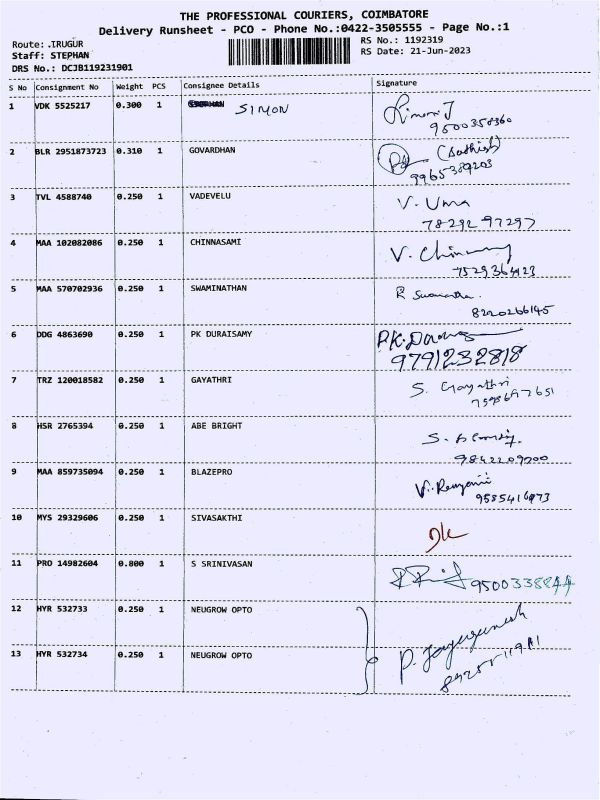 THE PROFESSIONAL COURIERS, COIMBATORE
Delivery Runsheet - PCO - Phone No.:0422-3505555 - Page No.:1
Route: .IRUGUR RS No.: 1192319
Staff: STEPHAN RS Date: 21-Jun-2023
DRS No.: DCJB119231901
S No Consignment No Weight PCS Consignee Details Signature
1 VDK 5525217 0.300 1 SIMON
9500350360
2 BLR 2951873723 0.310 1 GOVARDHAN (Sathish)
9965389203
3 TVL 4588740 0.250 1 VADEVELU V. Uma
78292 97297
4 MAA 102082086 0.250 1 CHINNASAMI
7529364123
5 MAA 570702936 0.250 1 SWAMINATHAN
8220266145
6 DDG 4863690 0.250 1 PK DURAISAMY
9791232818
7 TRZ 120018582 0.250 1 GAYATHRI S. Gayathri
8 HSR 2765394 0.250 1 ABE BRIGHT
9842209700
9 MAA 859735094 0.250 1 BLAZEPRO
9585416973
10 MYS 29329606 0.250 1 SIVASAKTHI
11 PRO 14982604 0.800 1 S SRINIVASAN 9500338844
12 HYR 532733 0.250 1 NEUGROW OPTO
13 HYR 532734 0.250 1 NEUGROW OPTO